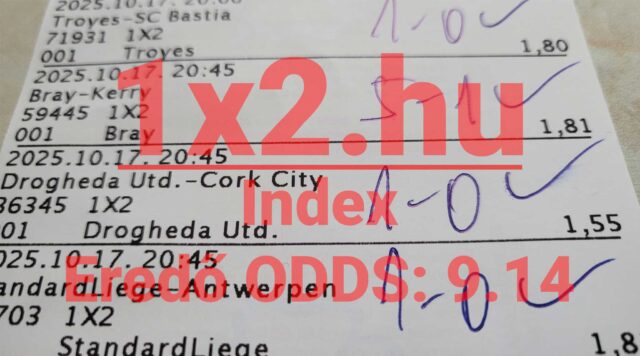 2025.10.17. 20:00
Troyes-SC Bastia
1-0 ✓
71931 1X2
001 Troyes 1,80
2025.10.17. 20:45
Bray-Kerry
5-1 ✓
59445 1X2
001 Bray 1,81
1x2.hu
2025.10.17. 20:45
Drogheda Utd.-Cork City
Index
1-0 ✓
36345 1X2
01 Drogheda Utd. 1,55
025.10.17. 20:45
Eredő ODDS: 9.14
andardLiege-Antwerpen
1-0 ✓
703 1X2
StandardLiege 1,8